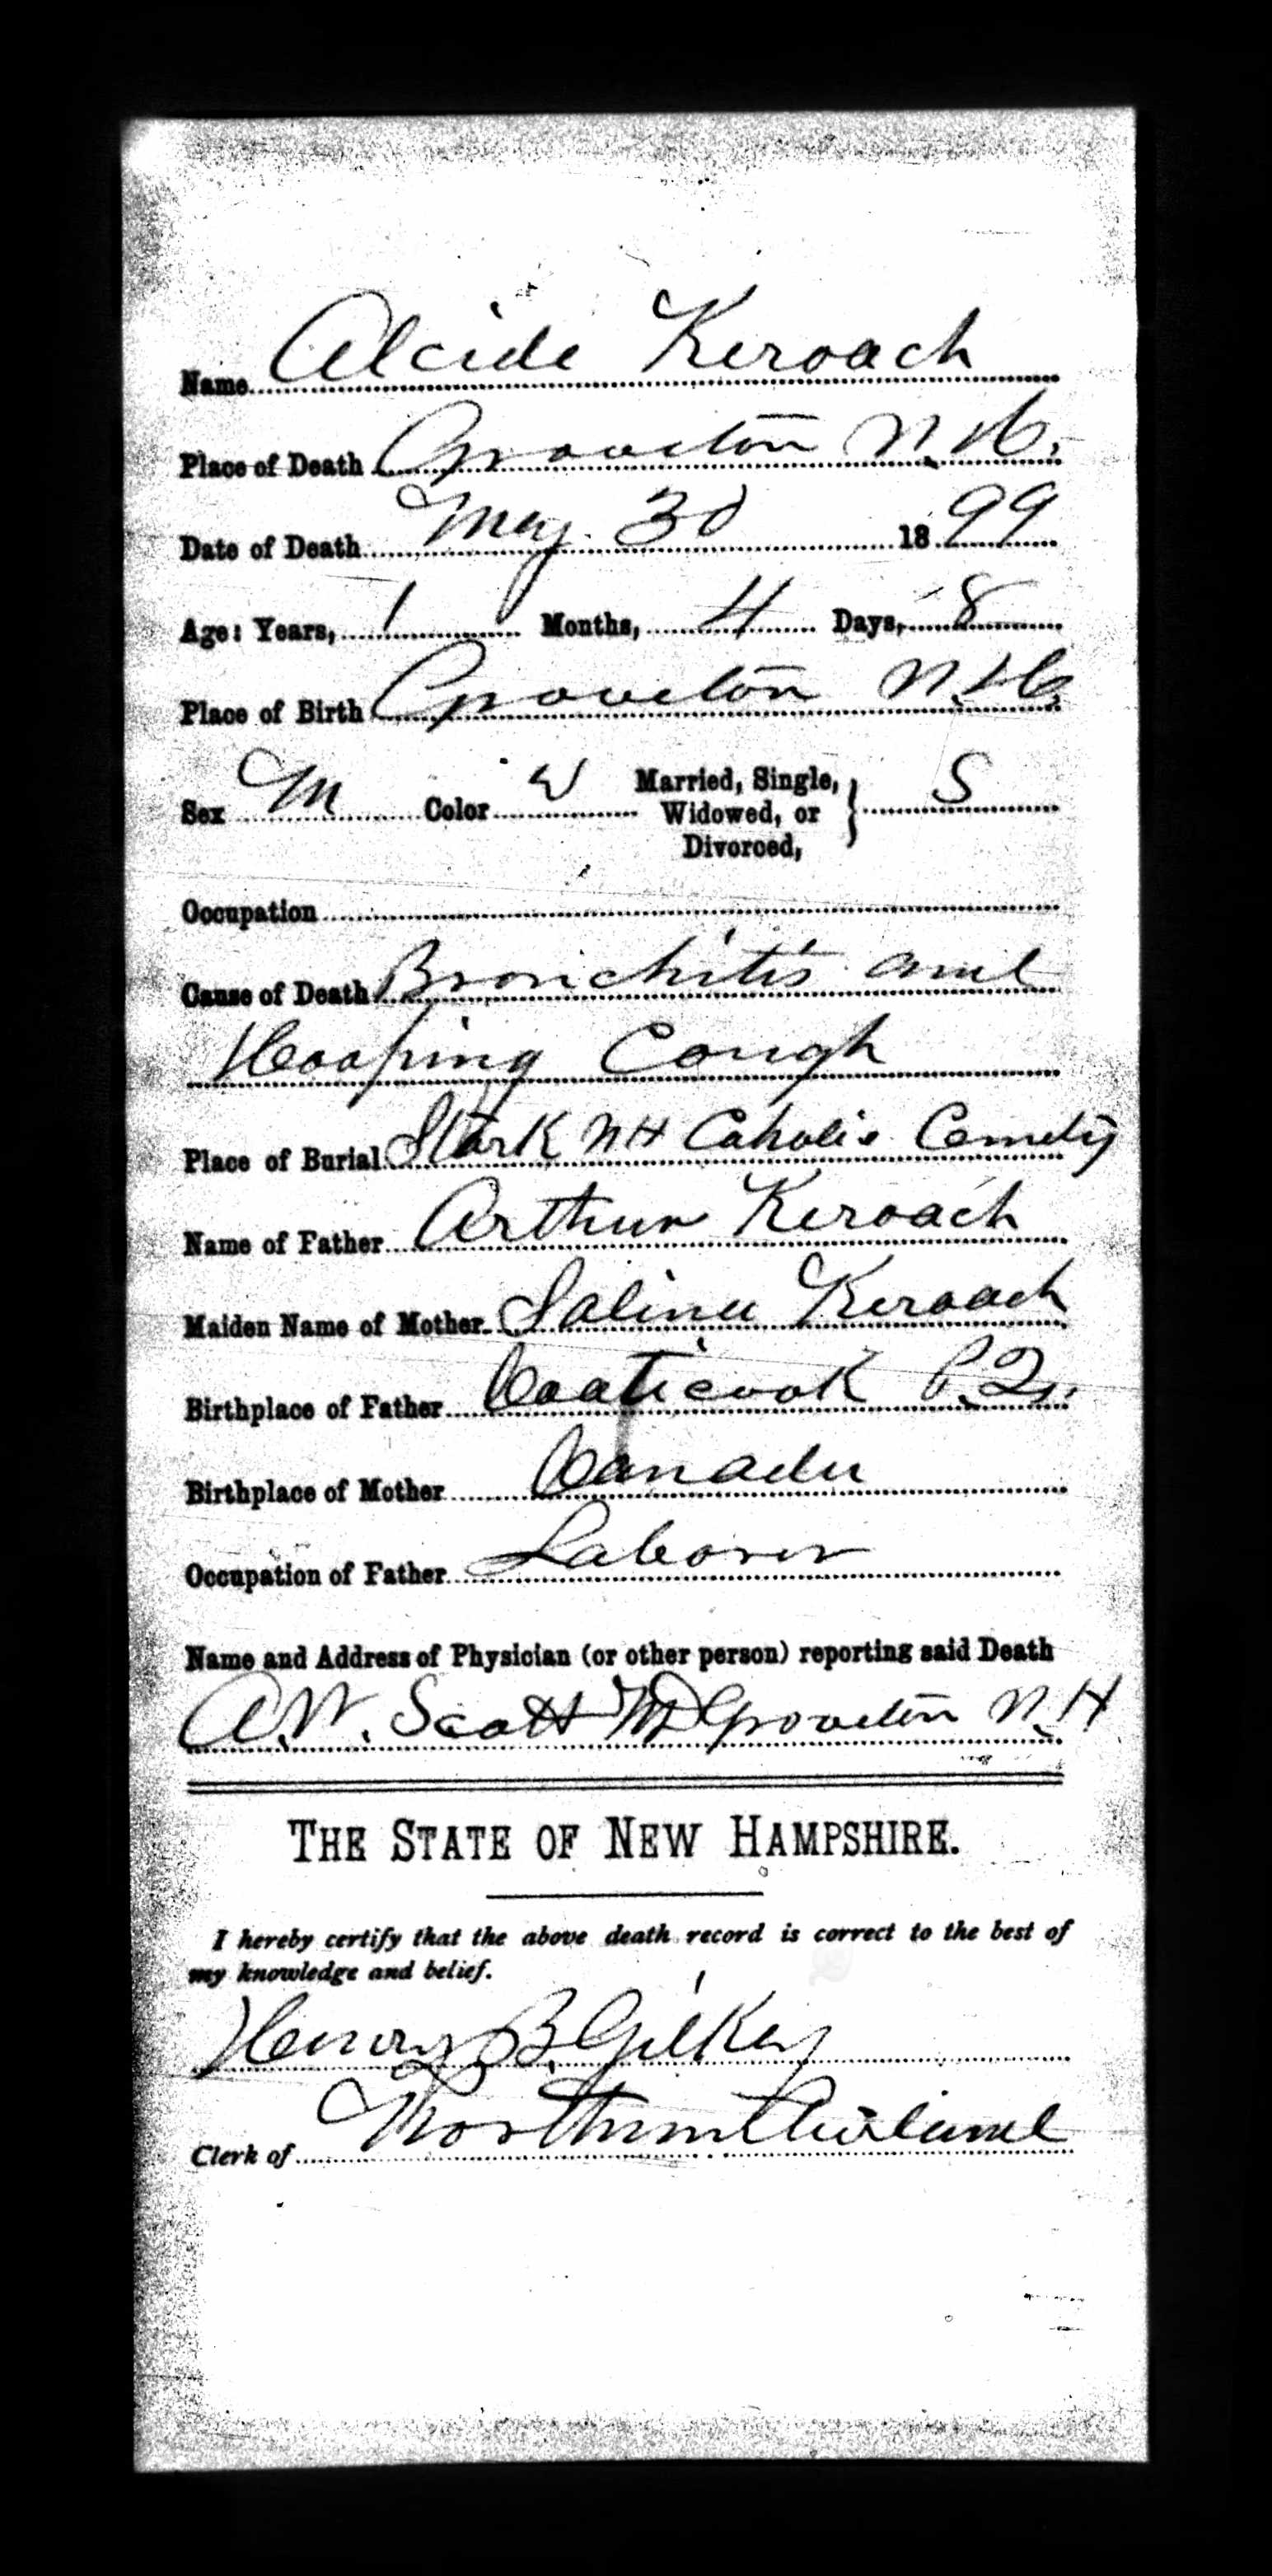 Name Alcide Keroach
Place of Death Groveton N.H.
Date of Death May 30 1899
Age: Years, 1 Months, 4 Days, 8
Place of Birth Groveton N.H.
Sex M Color W Married, Single, Widowed, or Divorced, } S
Occupation
Cause of Death Bronchitis and
Hooping Cough
Place of Burial Stark NH Caholic Cemetey
Name of Father Arthur Keroach
Maiden Name of Mother Salina Keroach
Birthplace of Father Coaticook P.Q.
Birthplace of Mother Canada
Occupation of Father Laborer
Name and Address of Physician (or other person) reporting said Death
A.W. Scott MD Groveton N.H
THE STATE OF NEW HAMPSHIRE.
I hereby certify that the above death record is correct to the best of
my knowledge and belief.
Henry B. Gilkey
Clerk of Northumberland